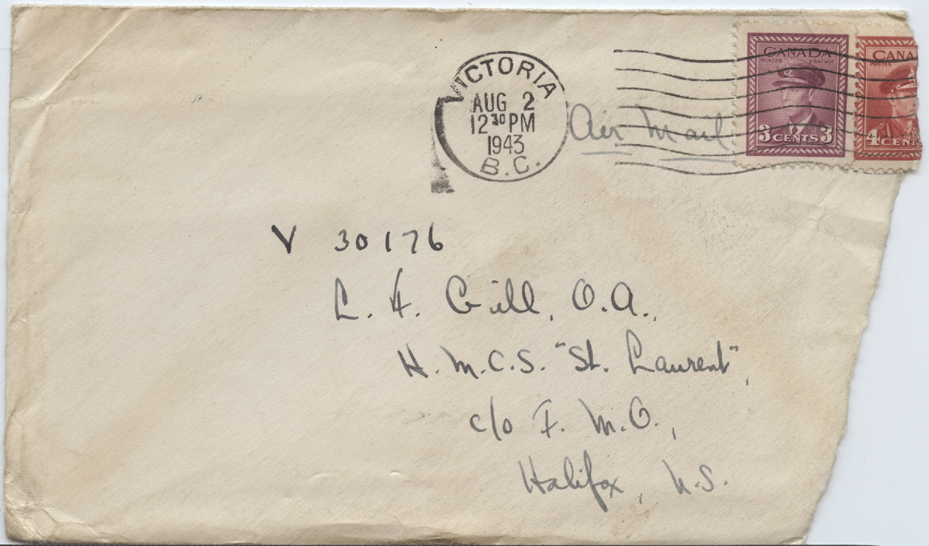 VICTORIA
AUG 2
12 30 PM
1943
B.C.
Air Mail
CANADA
POSTES POSTAGE
3 CENTS 3
CANA
POSTES
4 CEN
V 30176
L. H. Gill, O.A.,
H.M.C.S. "St. Laurent",
c/o F.M.O.,
Halifax, N.S.